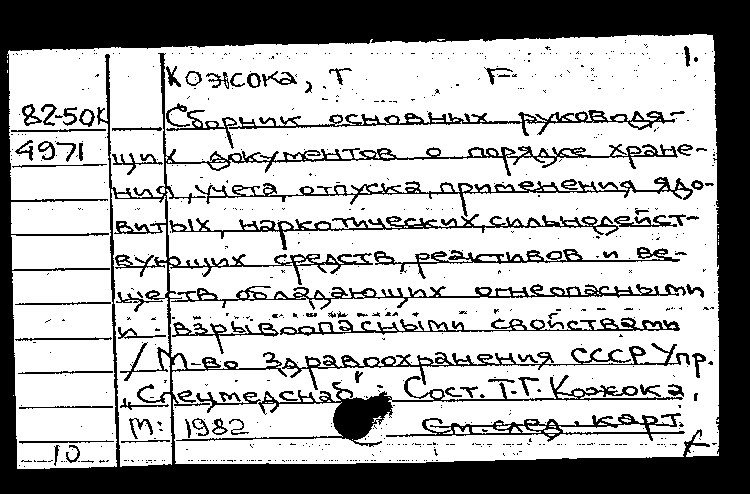 1.
Кожока, Т F
82-50К Сборник основных руководя-
4971 щих документов о порядке хране-
ния, учета, отпуска, применения ядо-
витых, наркотических, сильнодейст-
вующих средств, реактивов и ве-
ществ, обладающих огнеопасными
и взрывоопасными свойствами
/ М-во Здравоохранения СССР. Упр.
„Спецмедснаб". Сост. Т.Г. Кожока,
М: 1982 См. след. карт.
10